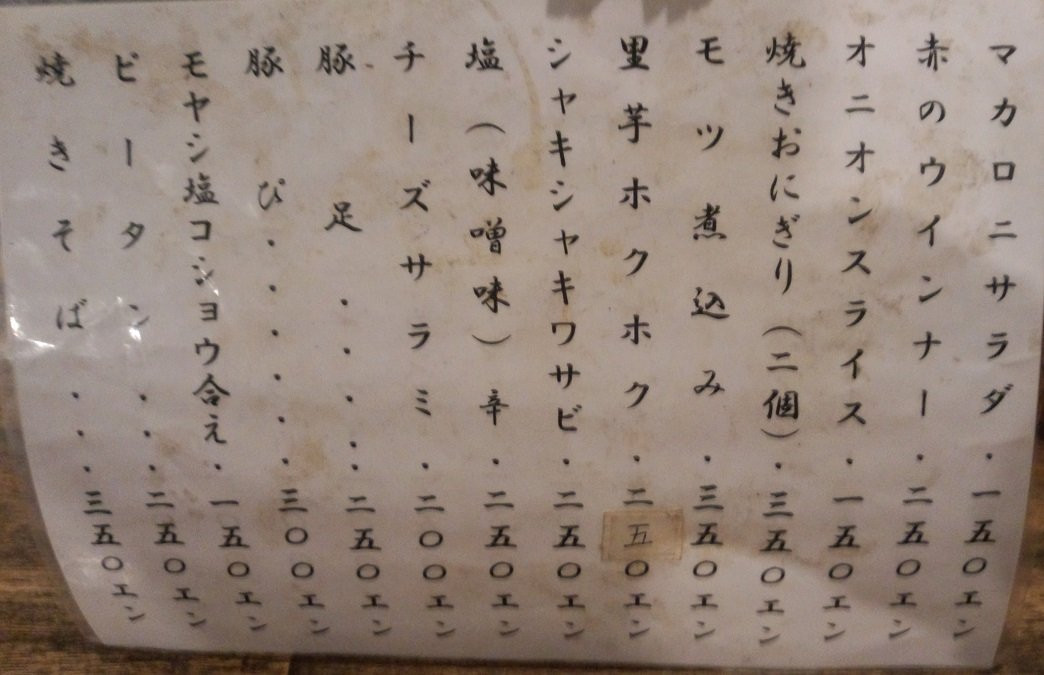 マカロニサラダ・一五〇エン
赤のウインナー・二五〇エン
オニオンスライス・一五〇エン
焼きおにぎり（二個）・三五〇エン
モツ煮込み・三五〇エン
里芋ホクホク・二五〇エン
シャキシャキワサビ・二五〇エン
塩（味噌味）辛・二五〇エン
チーズサラミ・二〇〇エン
豚足・・・・・二五〇エン
豚ぴ・・・・・・三〇〇エン
モヤシ塩コショウ合え・一五〇エン
ピータン・・・二五〇エン
焼きそば・・・三五〇エン